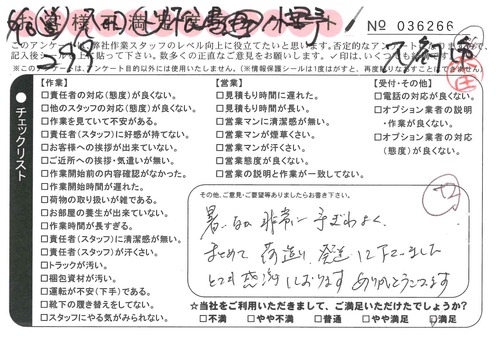 お客様 満足
№ 036266
このアンケートは、弊社作業スタッフのレベル向上に役立てたいと思います。否定的なアンケート
記入後シールを上に貼って下さい。数多くの正直なご意見をお願いします。✓印は、いくつでも
アンケート目的以外には使用いたしません。(※情報保護シールは1度はがすと、再度貼り
チェックリスト
【作業】
□責任者の対応(態度)が良くない。
□他のスタッフの対応(態度)が良くない。
□作業を見ていて不安がある。
□責任者(スタッフ)に好感が持てない。
□お客様への挨拶が出来ていない。
□ご近所への挨拶・気遣いが無い。
□作業開始前の内容確認がなかった。
□作業開始時間が遅れた。
□荷物の取り扱いが雑である。
□お部屋の養生が出来ていない。
□作業時間が長すぎる。
□責任者(スタッフ)に清潔感が無い。
□責任者(スタッフ)が汗くさい。
□トラックが汚い。
□梱包資材が汚い。
□運転が不安(下手)である。
□靴下の履き替えをしてない。
□スタッフにやる気がみられない。
【営業】
□見積もり時間に遅れた。
□見積もり時間が長い。
□営業マンに清潔感が無い。
□営業マンが煙草くさい。
□営業マンが汗くさい。
□営業態度が良くない。
□営業の説明と作業が一致してない。
【受付・その他】
□電話の対応が良くない。
□オプション業者の説明
・作業が良くない。
□オプション業者の対応
(態度)が良くない。
その他、ご意見・ご要望等ありましたらお書き下さい。
暑い日の非常に手ぎわよく、
まとめて荷造り、発送に下さいました
とても感謝しております ありがとうございます
☆当社をご利用いただきまして、ご満足いただけたでしょうか?
□不満 □やや不満 □普通 □やや満足 ☑満足